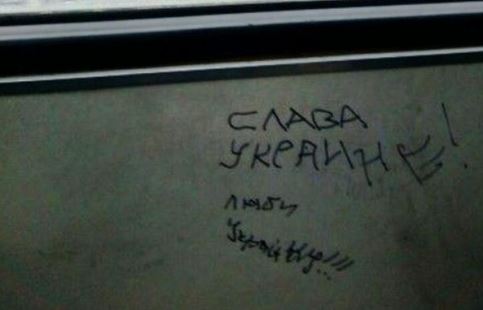 СЛАВА
УКРАИНЕ!
люби
Україну!!!